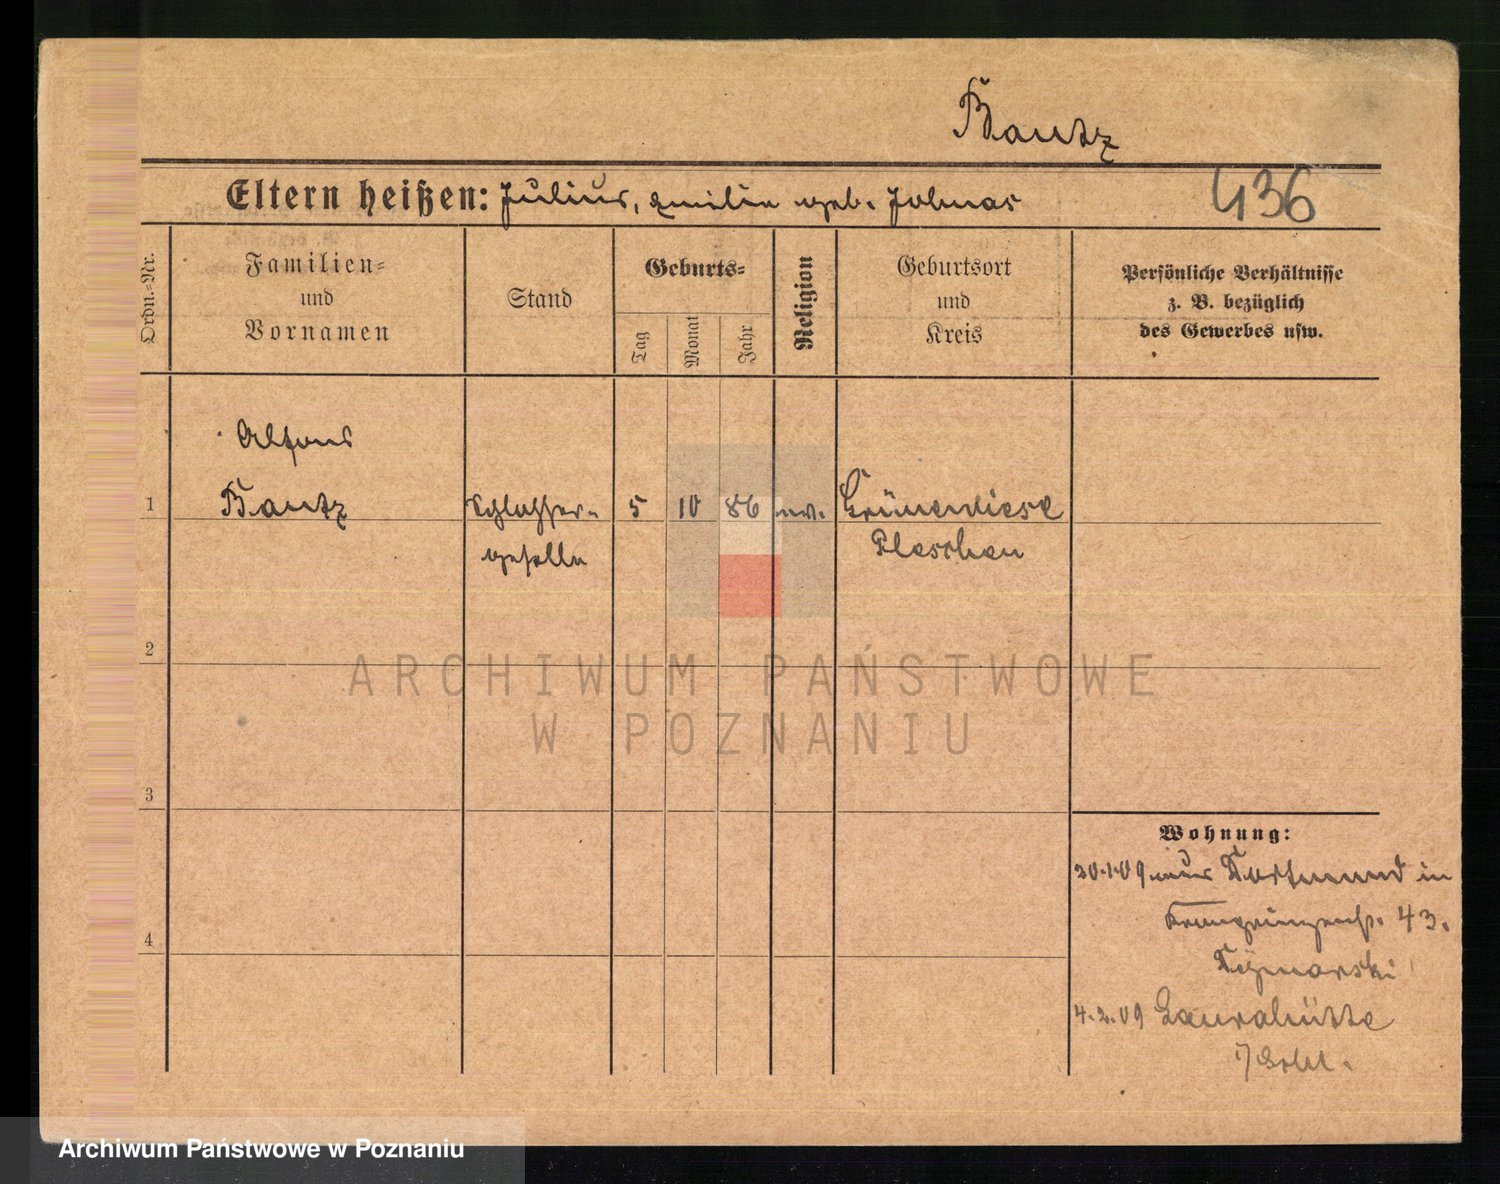 Bautz
Eltern heißen: Julius, Emilie geb. Johnas
436
Ordn.=Nr.
Familien=
und
Vornamen
Stand
Geburts=
Tag
Monat
Jahr
Religion
Geburtsort
und
Kreis
Persönliche Verhältnisse
z. B. bezüglich
des Gewerbes usw.
Alfons
1 Bautz Schlosser= 5 10 86 ev. Grünewiese
geselle Pleschen
2
3
4
Wohnung:
20.1.09 aus Dortmund in
Kronprinzenstr. 43.
4.2.09 Laurahütte
ARCHIWUM PAŃSTWOWE
W POZNANIU
Archiwum Państwowe w Poznaniu